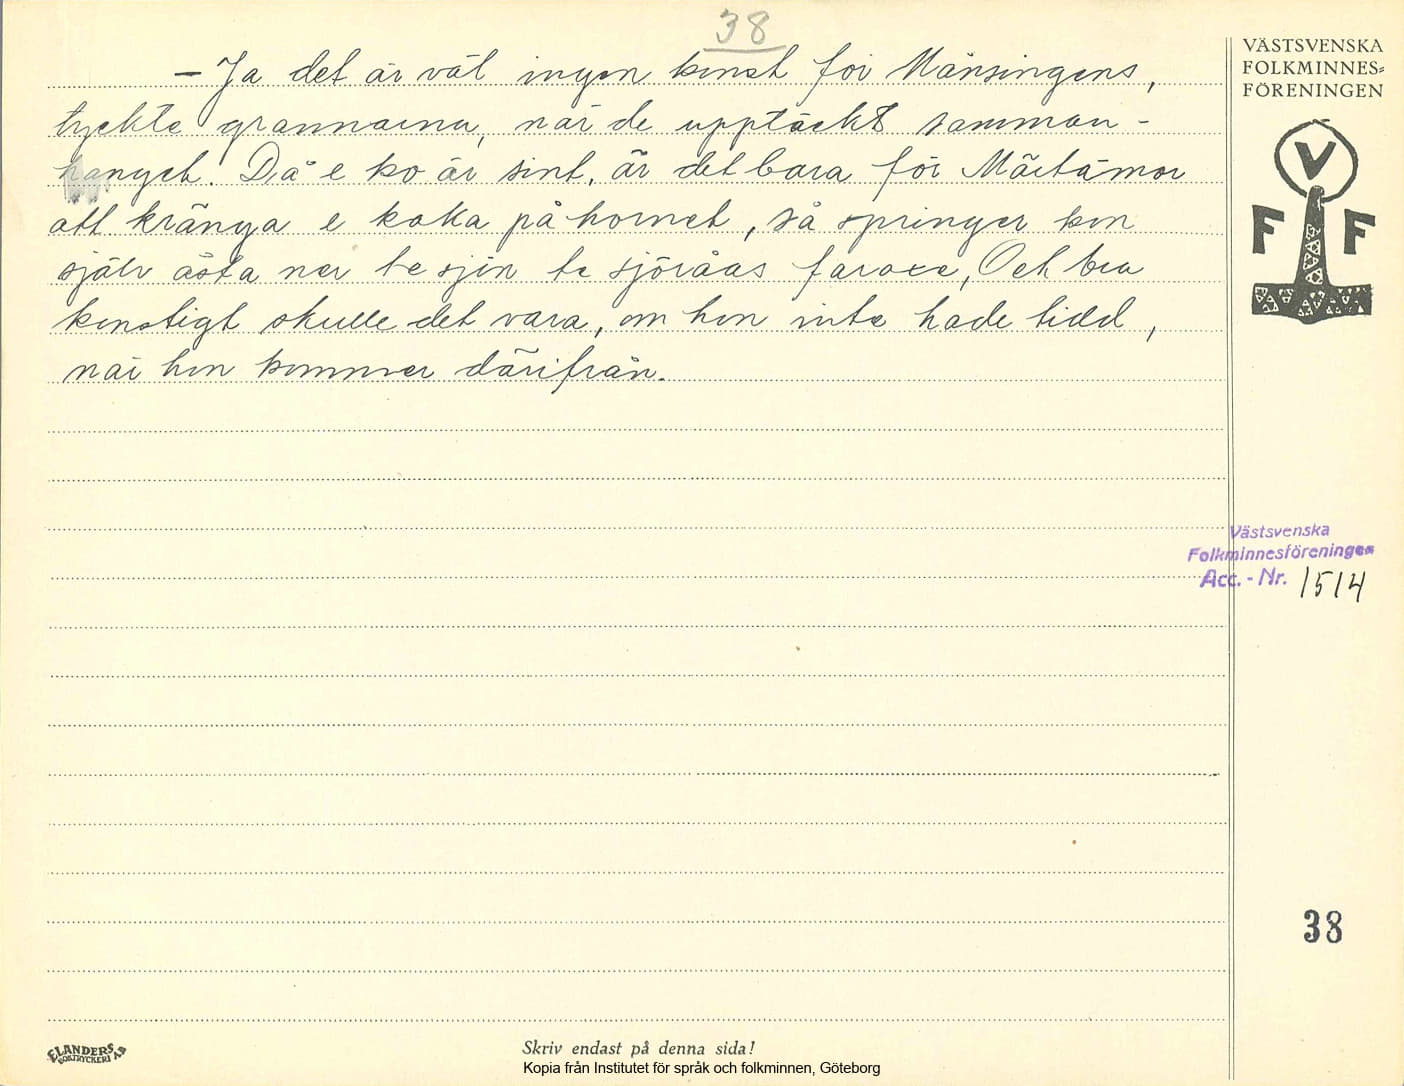 38
– Ja det är väl ingen konst för Månsingens,
tyckte grannarna, när de upptäckt samman-
hanget. Då e ko är sint, är det bara för Märtamor
att kränga e kaka på hornet, så springer kon
själv ästa ner te sjin te sjöråas
Och bra
konstigt skulle det vara, om hon inte hade tidd,
när hon kommer därifrån.
VÄSTSVENSKA
FOLKMINNES=
FÖRENINGEN
V
F F
Västsvenska
Folkminnesföreningen
Acc. - Nr. 1514
38
ELANDERS
BOKTRYCKERI A.B.
Skriv endast på denna sida!
Kopia från Institutet för språk och folkminnen, Göteborg